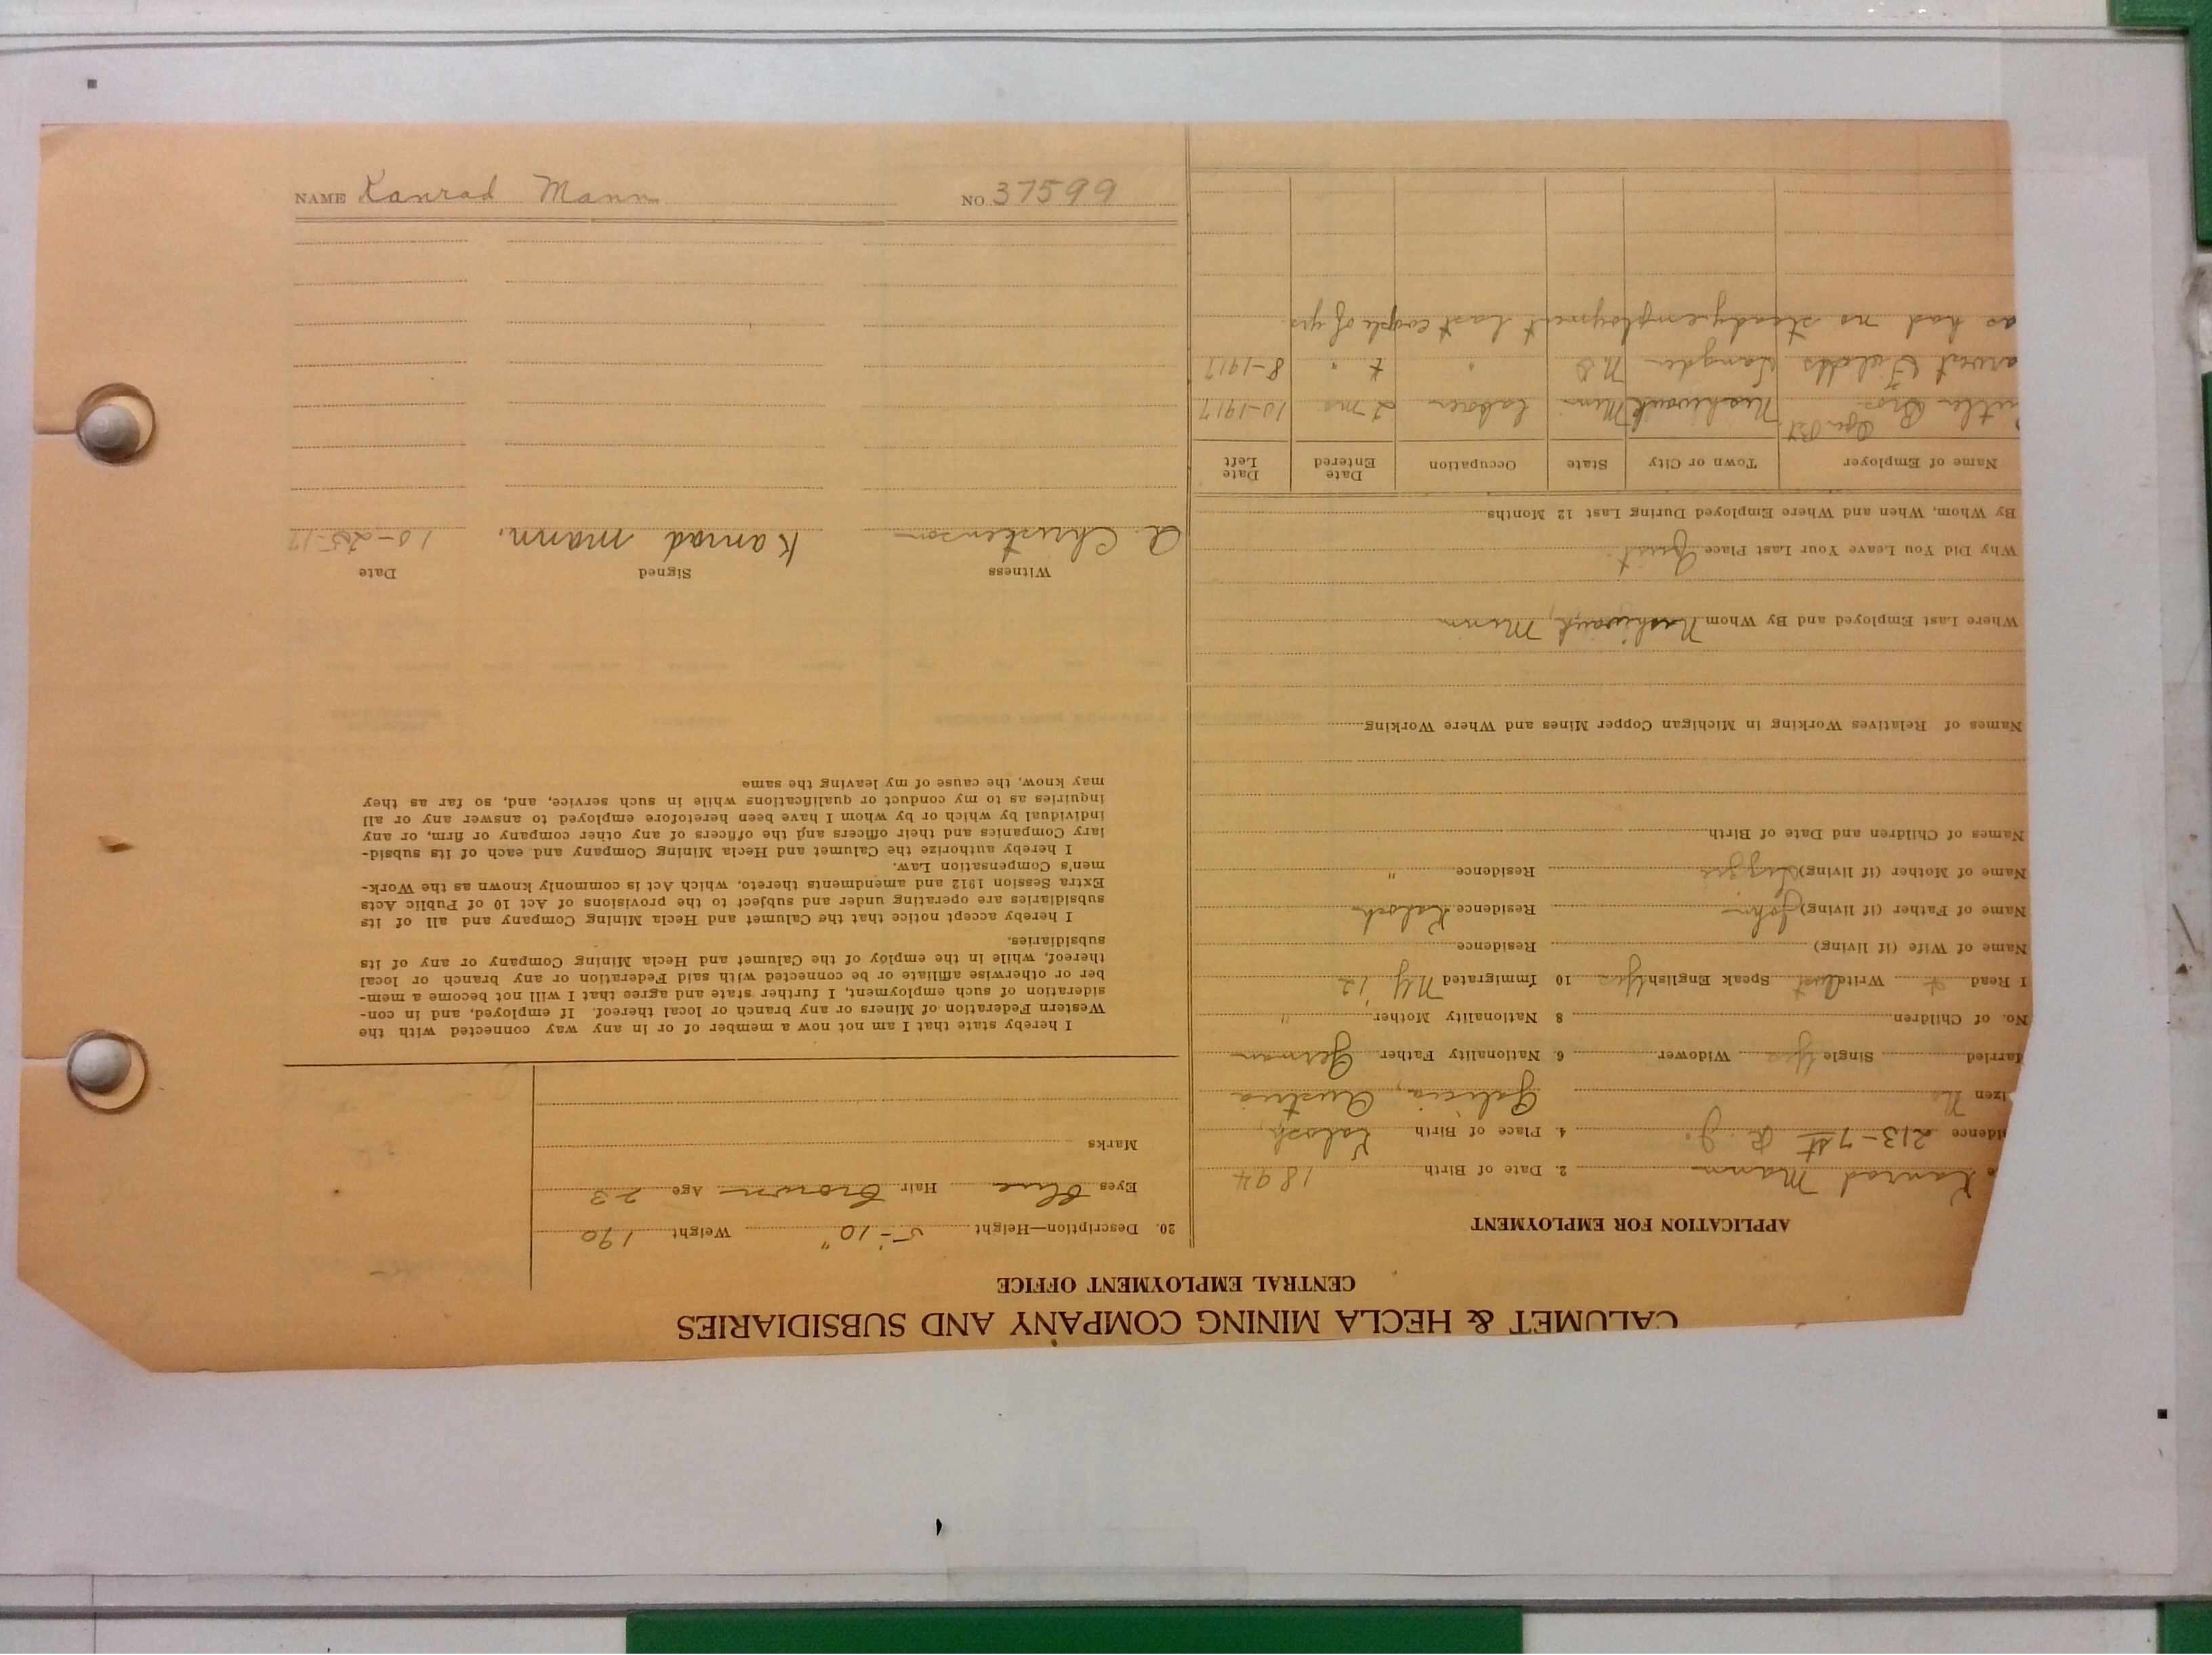 CALUMET & HECLA MINING COMPANY AND SUBSIDIARIES
CENTRAL EMPLOYMENT OFFICE
APPLICATION FOR EMPLOYMENT
e Kanrad Mann 2. Date of Birth 1894
idence 213-7 st 4. Place of Birth
izen No Galicia, Austria
arried Single Yes Widower 6. Nationality Father German
No. of Children 8 Nationality Mother "
I Read Write Speak English Yes 10 Immigrated N.Y. '12
Name of Wife (if living) Residence
Name of Father (if living) John Residence
Name of Mother (if living) Residence "
Names of Children and Date of Birth
Names of Relatives Working in Michigan Copper Mines and Where Working
Where Last Employed and By Whom Nashwauk, Minn
Why Did You Leave Your Last Place Quit
By Whom, When and Where Employed During Last 12 Months
Name of Employer Town or City State Occupation Date Entered Date Left
utler Bros Open Pit Nashwauk Minn labor 2 mo 10-1917
arvest Fields Langdon N D " 8-1917
as had no steady employment last couple of yrs
20. Description—Height 5-10" Weight 190
Eyes Blue Hair Brown Age 23
Marks
I hereby state that I am not now a member of or in any way connected with the
Western Federation of Miners or any branch or local thereof. If employed, and in con-
sideration of such employment, I further state and agree that I will not become a mem-
ber or otherwise affiliate or be connected with said Federation or any branch or local
thereof, while in the employ of the Calumet and Hecla Mining Company or any of its
subsidiaries.
I hereby accept notice that the Calumet and Hecla Mining Company and all of its
subsidiaries are operating under and subject to the provisions of Act 10 of Public Acts
Extra Session 1912 and amendments thereto, which Act is commonly known as the Work-
men's Compensation Law.
I hereby authorize the Calumet and Hecla Mining Company and each of its subsid-
iary Companies and their officers and the officers of any other company or firm, or any
individual by which or by whom I have been heretofore employed to answer any or all
inquiries as to my conduct or qualifications while in such service, and, so far as they
may know, the cause of my leaving the same
Witness Signed Date
A Christenson Kanrad Mann. 10-25-17
NAME Kanrad Mann NO. 37599